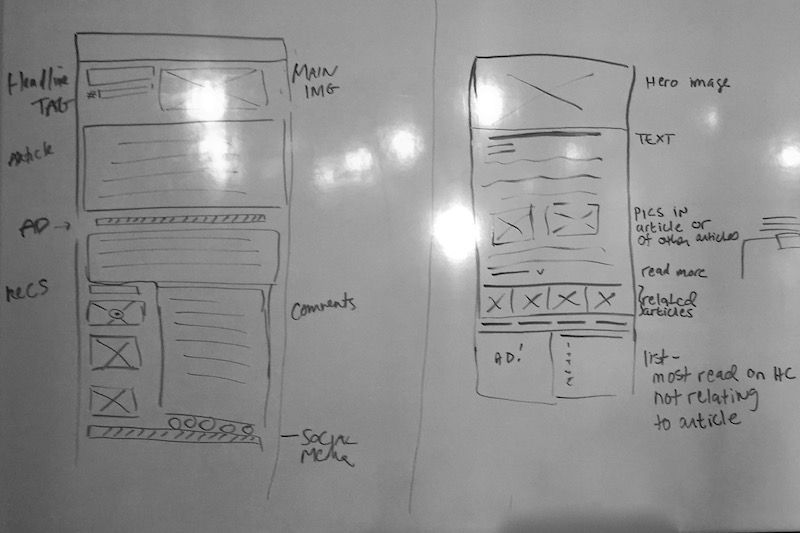 Headline
TAG
#
MAIN
IMG
Article
AD →
RECS
Comments
Social
Media
Hero image
TEXT
PICS IN
article or
of other articles
read more
related
articles
AD!
list-
most read on HC
not relating
to article